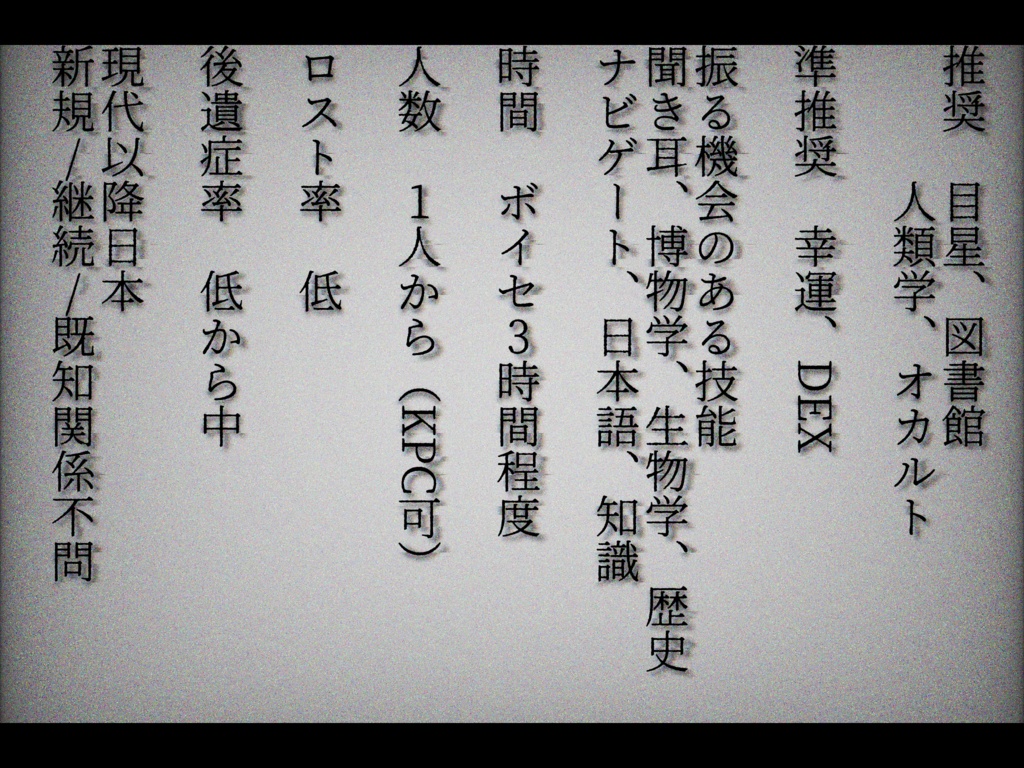 推奨　目星、図書館
人類学、オカルト
準推奨　幸運、DEX
振る機会のある技能
聞き耳、博物学、生物学、歴史
ナビゲート、日本語、知識
時間　ボイセ3時間程度
人数　1人から（KPC可）
ロスト率　低
後遺症率　低から中
現代以降日本
新規/継続/既知関係不問